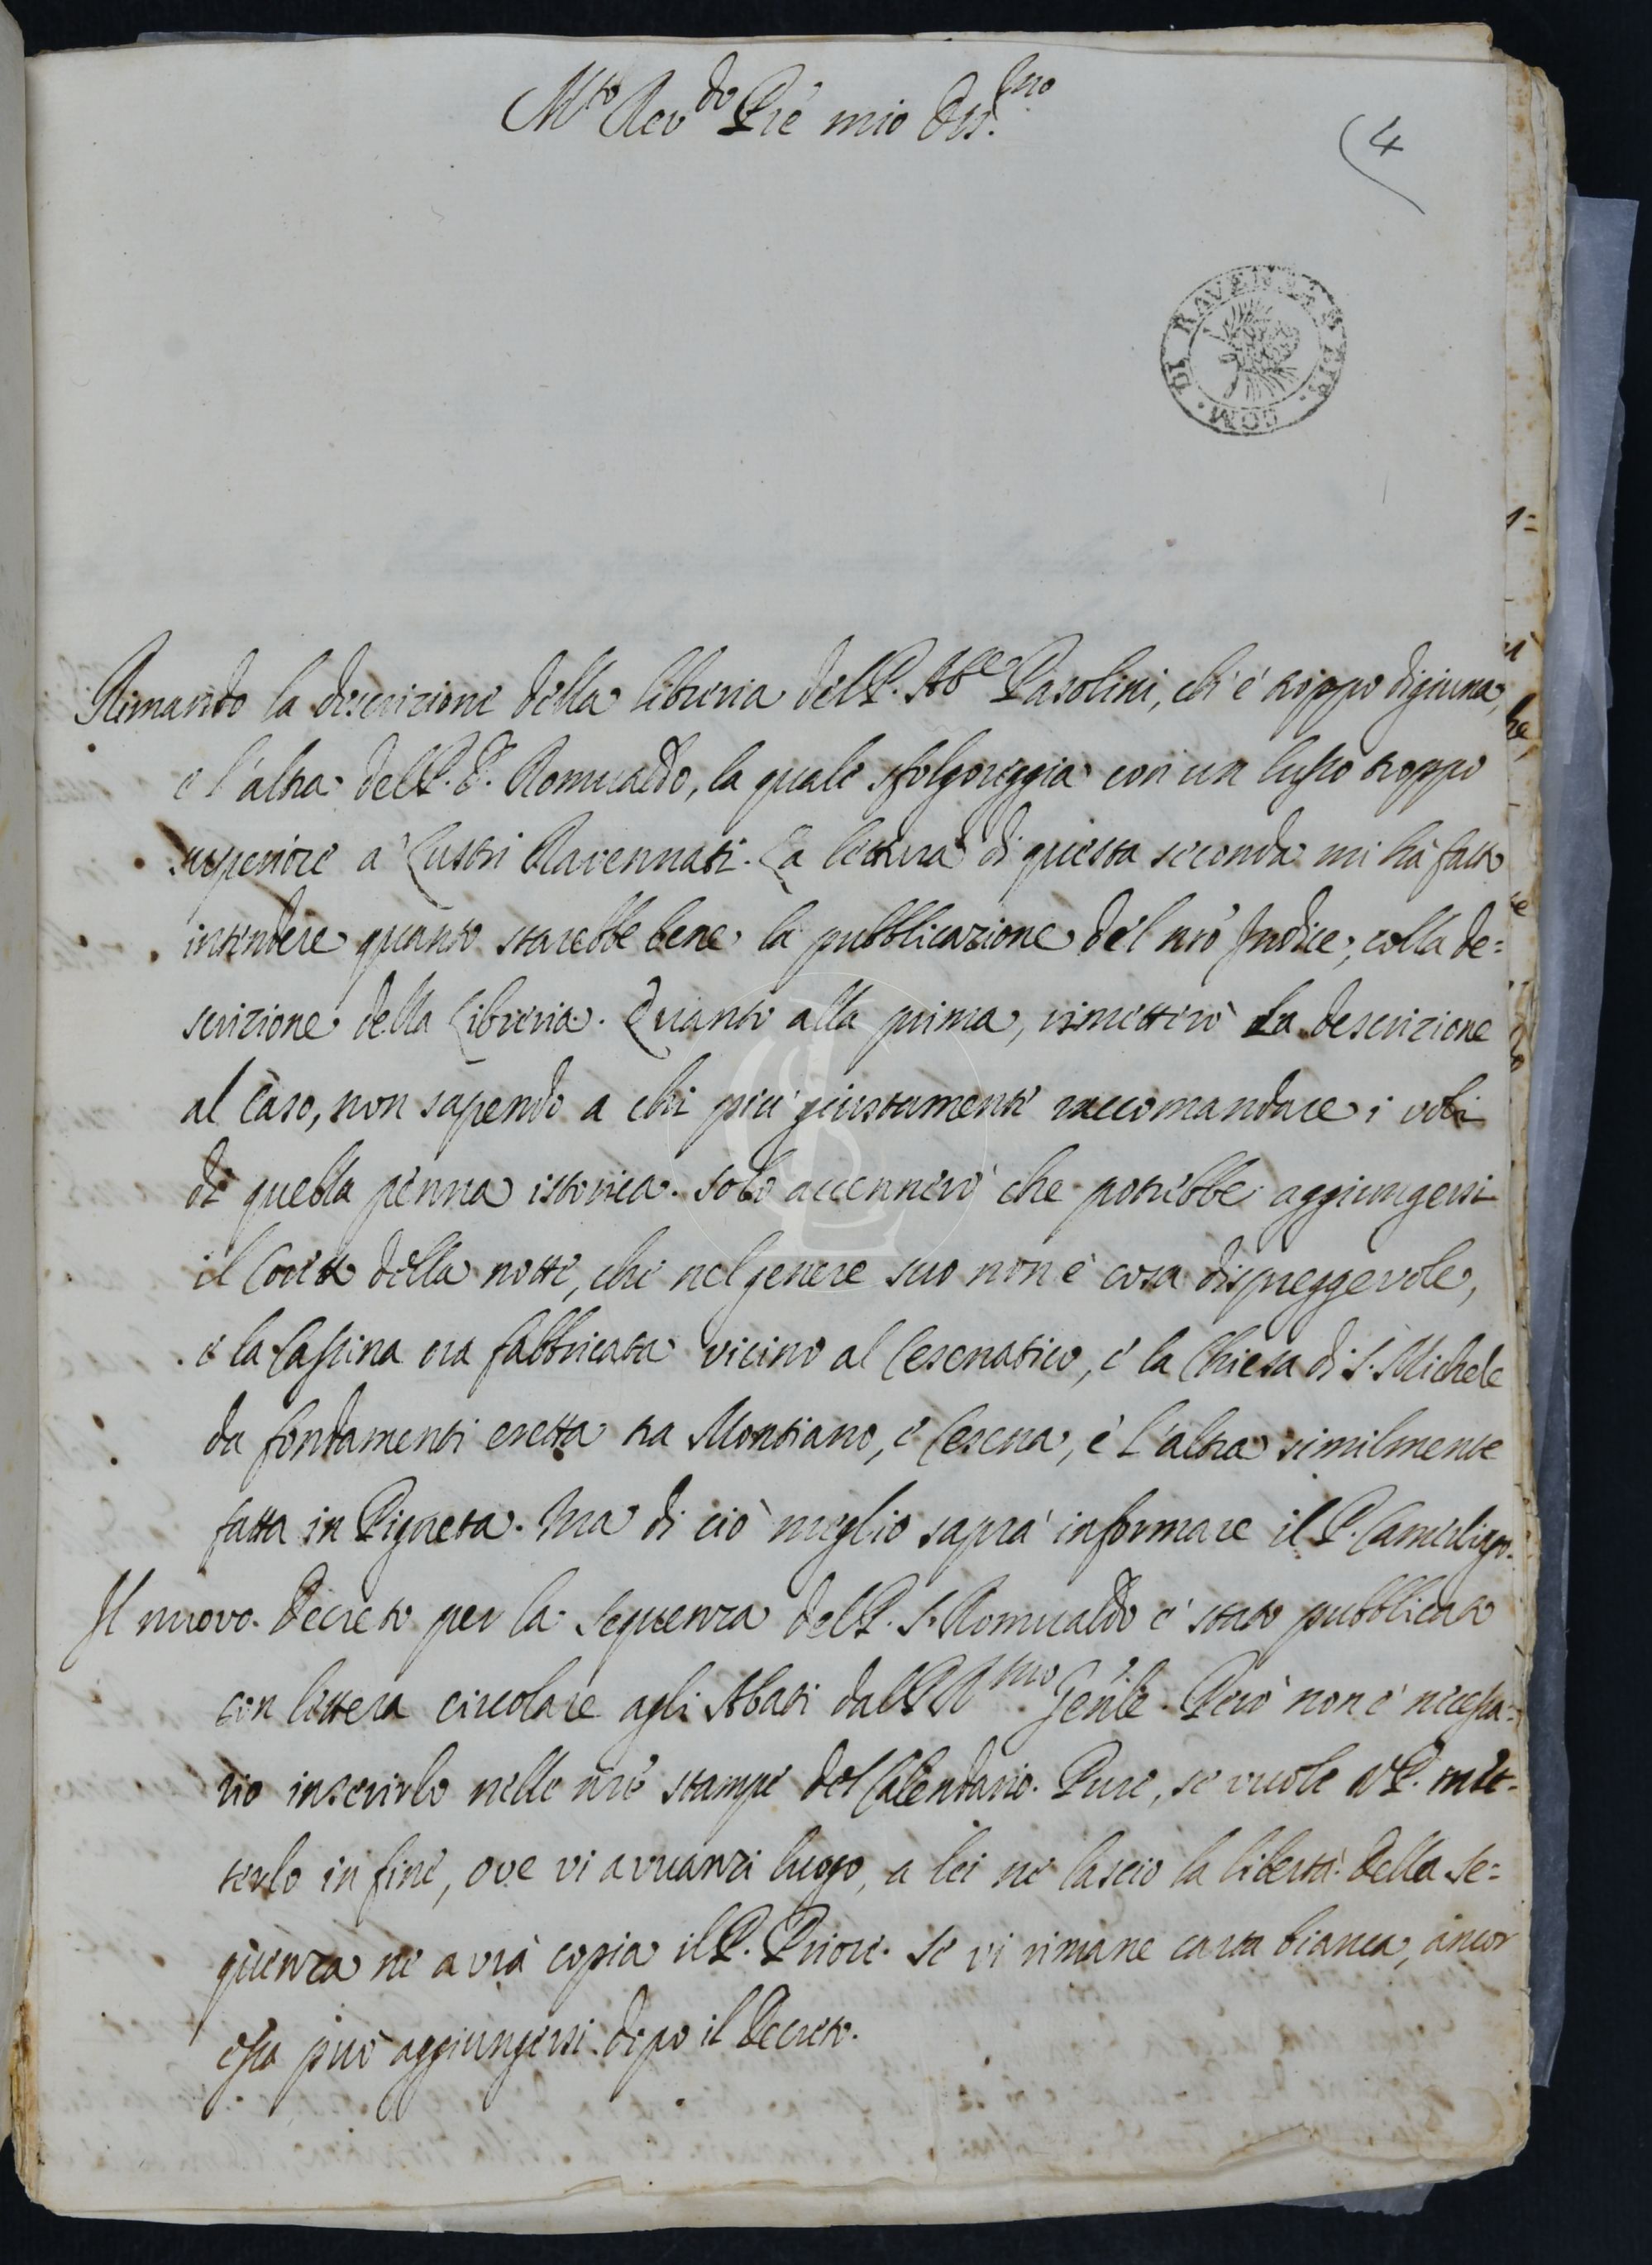 M.to Rev.do Pre mio Oss.mo
(4
COM. DI RAVENNA BIB.
Rimando la descrizione della libreria del P. Abe Pasolini, ch'è troppo digiuna,
e l'altra del P. D. Romualdo, la quale sfolgoreggia con un lusso troppo
superiore a' Lustri Ravennati. La lettura di questa seconda mi hà fatto
intendere quanto starebbe bene la pubblicazione del nrõ Indice, colla de=
scrizione della Libreria. Quanto alla prima, rimetterò la descrizione
al Caso, non sapendo a chi più giustamente raccomandare i voli
di quella penna istorica. Solo accennerò che potrebbe aggiungersi
il Coretto della notte, che nel genere suo non è cosa dispreggevole,
e la Cassina ora fabbricata vicino al Cesenatico, e la Chiesa di S. Michele
da fondamenti eretta tra Montiano, e Cesena, e l'altra similmente
fatta in Pigneta. Ma di ciò meglio saprà informare il P. Camerlingo.
Il nuovo Decreto per la Sequenza del P. S. Romualdo è stato pubblicato
con lettera circolare agli Abati dal P. Rmo Genle. Però non è necessa=
rio inserirlo nelle nrẽ stampe del Calendario. Pure, se vuole V. P. met=
terlo in fine, ove vi avvanzi luogo, a lei ne lascio la libertà. Della Se=
quenza ne avrà copia il P. Priore. Se vi rimane carta bianca, ancor
essa può aggiungersi dopo il Decreto.